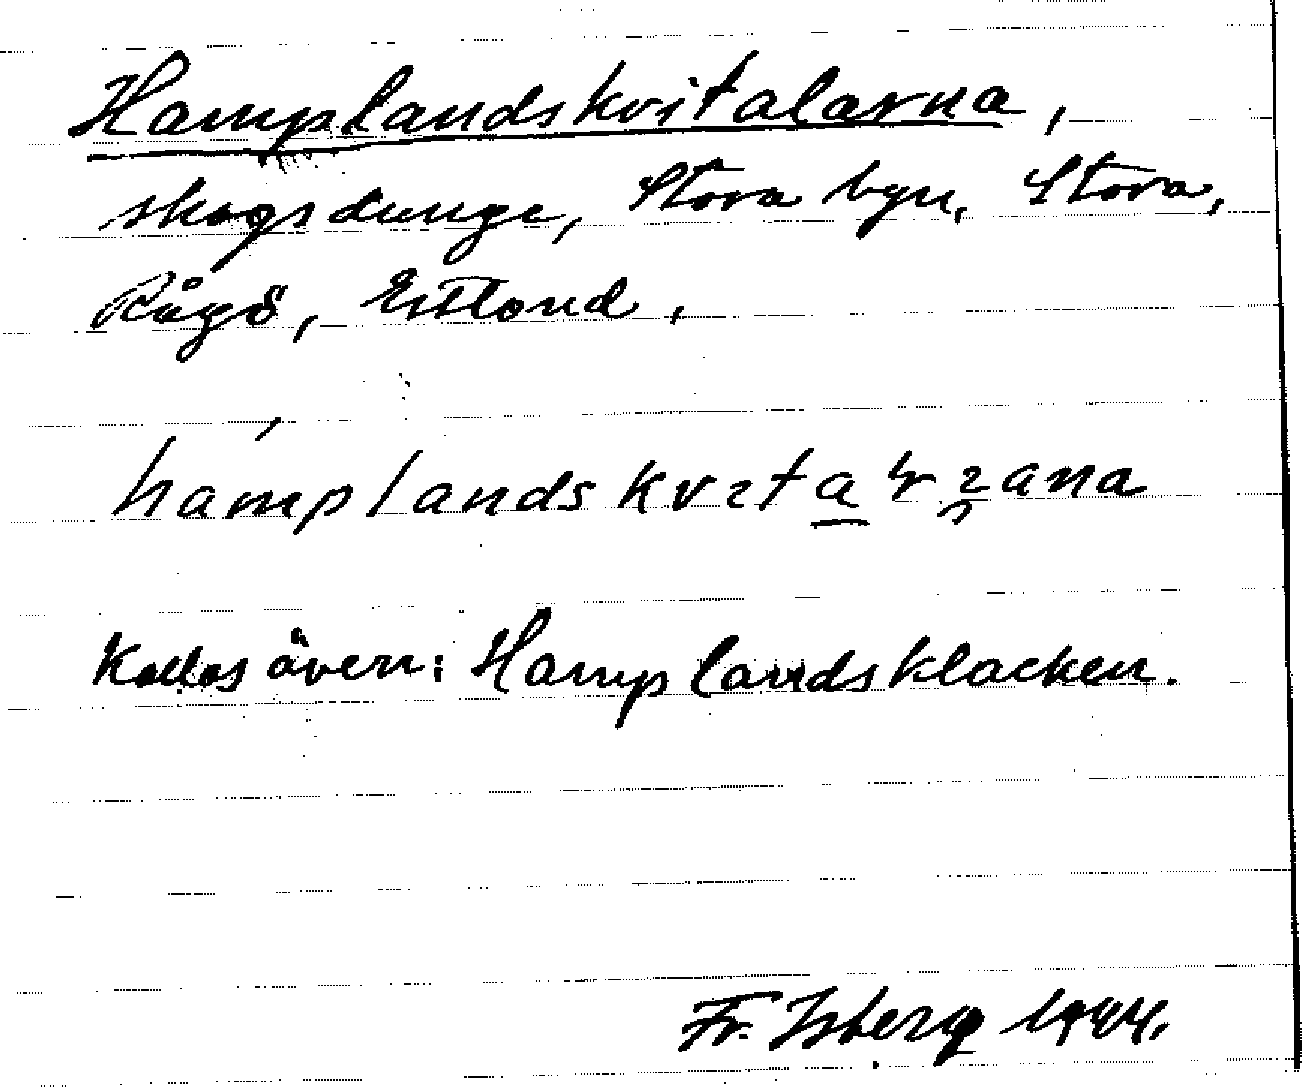 Hamplandskvitalarna,
skogsdunge, Stora byn, Stora,
Rågö, Estland,
Kallas även: Hamplandsklacken.
Fr. Isberg 1944.